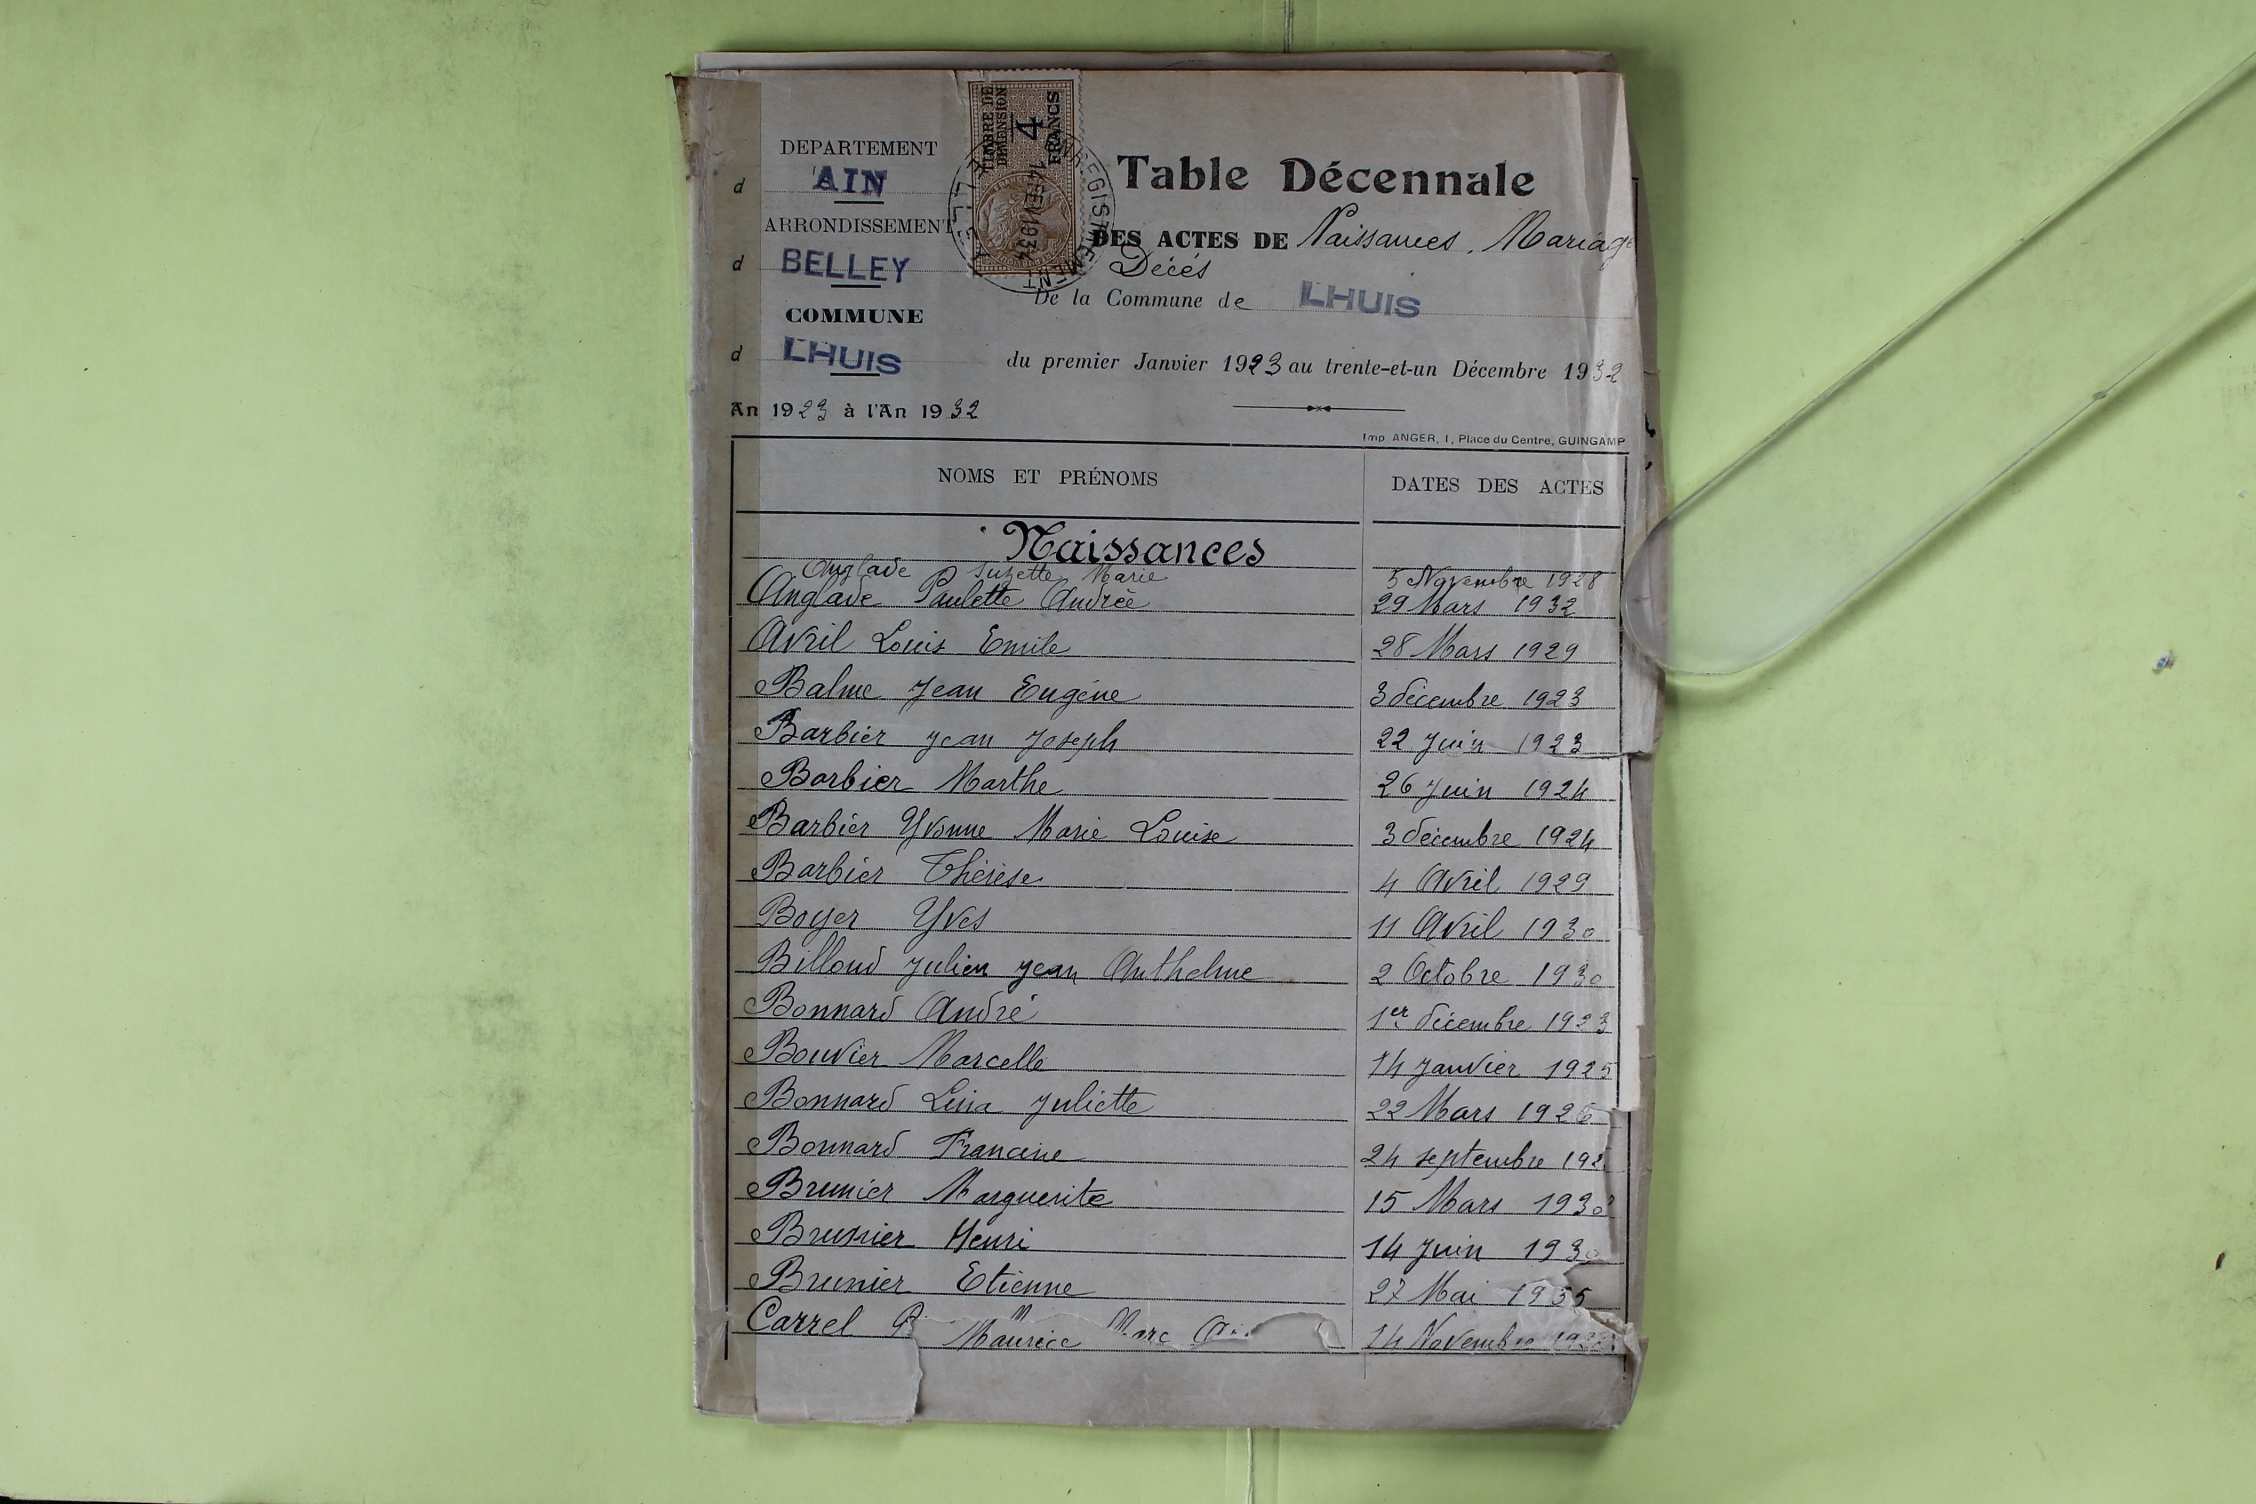 DEPARTEMENT
d AIN
ARRONDISSEMENT
d BELLEY
COMMUNE
d LHUIS
An 1923 à l'An 1932
TIMBRE DE DIMENSION
4 FRANCS
14 FEV 1934
ENREGISTREMENT
Table Décennale
DES ACTES DE Naissances, Mariage
Décés
De la Commune de LHUIS
du premier Janvier 1923 au trente-et-un Décembre 1932
Imp. ANGER, 1, Place du Centre, GUINGAMP
NOMS ET PRÉNOMS DATES DES ACTES
Naissances
Anglade Suzette Marie 5 Novembre 1928
Anglade Paulette Andrée 29 Mars 1932
Avril Louis Emile 28 Mars 1929
Balme Jean Eugéne 3 décembre 1923
Barbier Jean Joseph 22 Juin 1923
Barbier Marthe 26 Juin 1924
Barbier Yvonne Marie Louise 3 décembre 1924
Barbier Thérèse 4 Avril 1929
Boyer Yves 11 Avril 1930
Billoud Julien Jean Anthelme 2 Octobre 1930
Bonnard André 1er décembre 1923
Bouvier Marcelle 14 Janvier 1925
Bonnard Lina Juliette 22 Mars 1926
Bonnard Francine 24 septembre 192
Brunier Marguerite 15 Mars 1930
Brunier Henri 14 Juin 1930
Brunier Etienne 27 Mai
Carrel Maurice Marc 14 Novembre